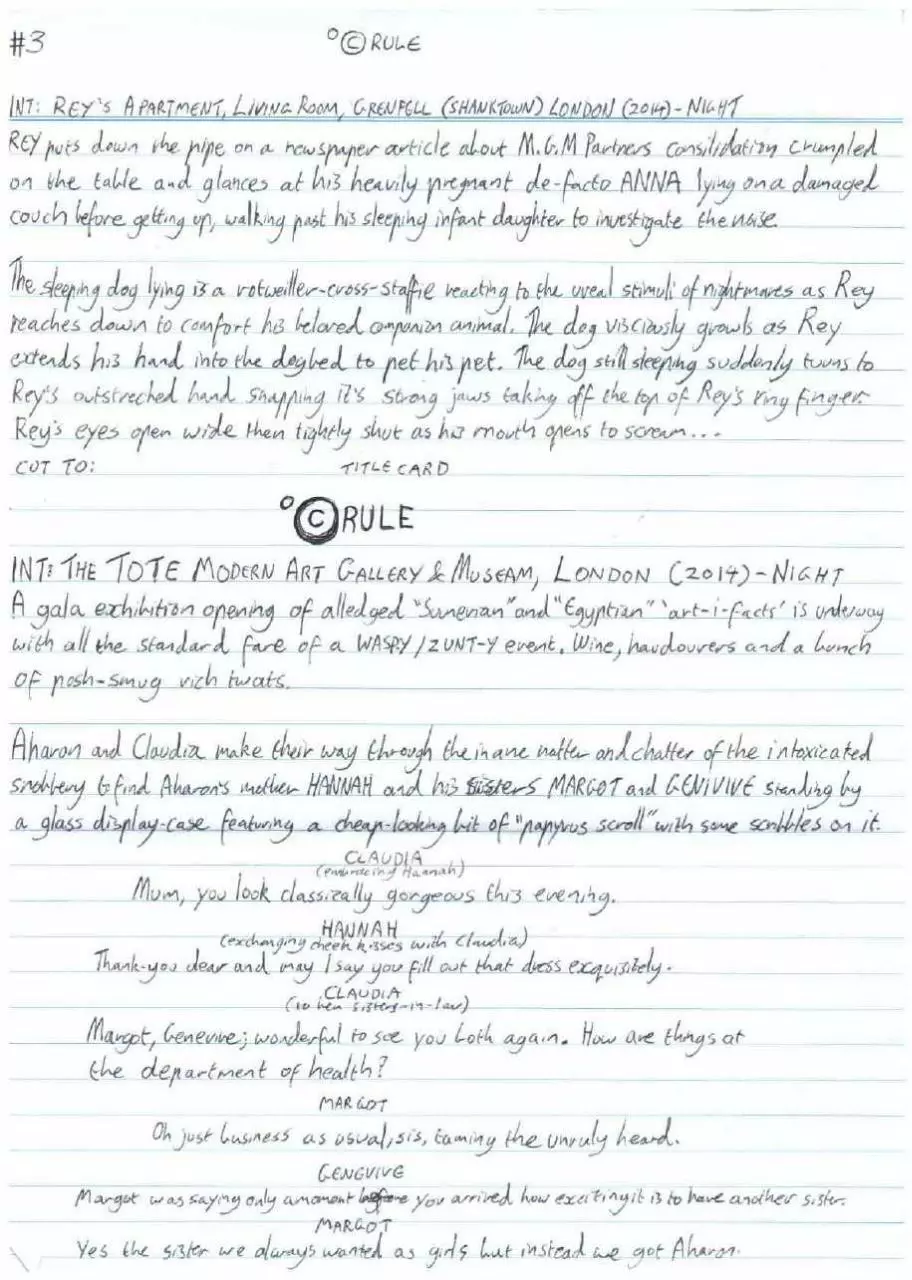 #3 °© RULE
INT: REY'S APARTMENT, LIVING ROOM, GRENFELL (SHANKTOWN) LONDON (2014) - NIGHT
REY puts down the pipe on a newspaper article about M.G.M Partners consilidation crumpled
on the table and glances at his heavily pregnant de-facto ANNA lying on a damaged
couch before getting up, walking past his sleeping infant daughter to investigate the noise.
The sleeping dog lying is a rotweiller-cross-staffie reacting to the ureal stimuli of nightmares as Rey
reaches down to comfort his beloved companion animal. The dog visciously growls as Rey
extends his hand into the dogbed to pet his pet. The dog still sleeping suddenly turns to
Rey's outstreched hand snapping it's strong jaws taking off the top of Rey's ring finger.
Rey's eyes open wide then tightly shut as his mouth opens to scream...
CUT TO: TITLE CARD
°© RULE
INT: THE TOTE MODERN ART GALLERY & MUSEAM, LONDON (2014) - NIGHT
A gala exhibition opening of alledged "Sumerian" and "Egyptian" 'art-i-facts' is underway
with all the standard fare of a WASPY/ZUNT-Y event. Wine, haudouvers and a bunch
of posh-smug rich twats.
Aharon and Claudia make their way through the inane natter and chatter of the intoxicated
snobbery to find Aharon's mother HANNAH and his sisters MARGOT and GENIVIVE standing by
a glass display-case featuring a cheap-looking bit of "papyrus scroll" with some scribbles on it.
CLAUDIA
(embracing Hannah)
Mum, you look classically gorgeous this evening.
HANNAH
(exchanging cheek kisses with Claudia)
Thank-you dear and may I say you fill out that dress exquisitely.
CLAUDIA
(to her sisters-in-law)
Margot, Genevive; wonderful to see you both again. How are things at
the department of health?
MARGOT
Oh just business as usual, sis, taming the unruly heard.
GENEVIVE
Margot was saying only a moment before you arrived how exciting it is to have another sister.
MARGOT
Yes the sister we always wanted as girls but instead we got Aharon.